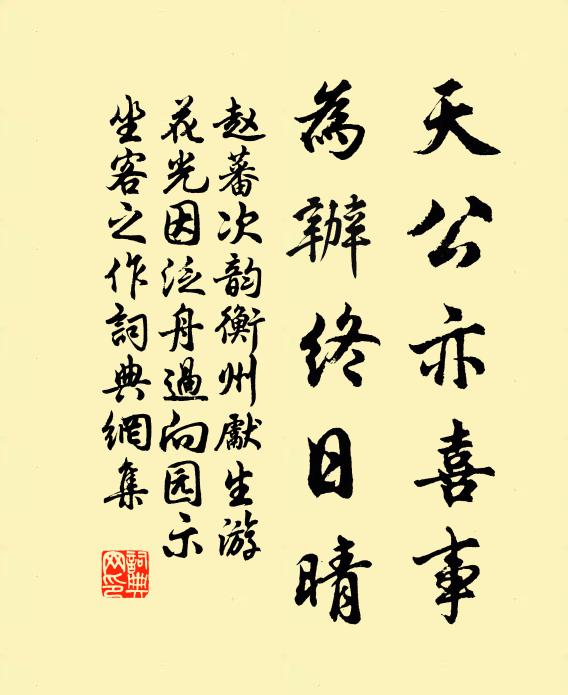 天公亦喜事
為辦終日晴
赵蕃次韵衡州獻生游
花光因泛舟過向园示
坐客之作詞典網集
詞典网印